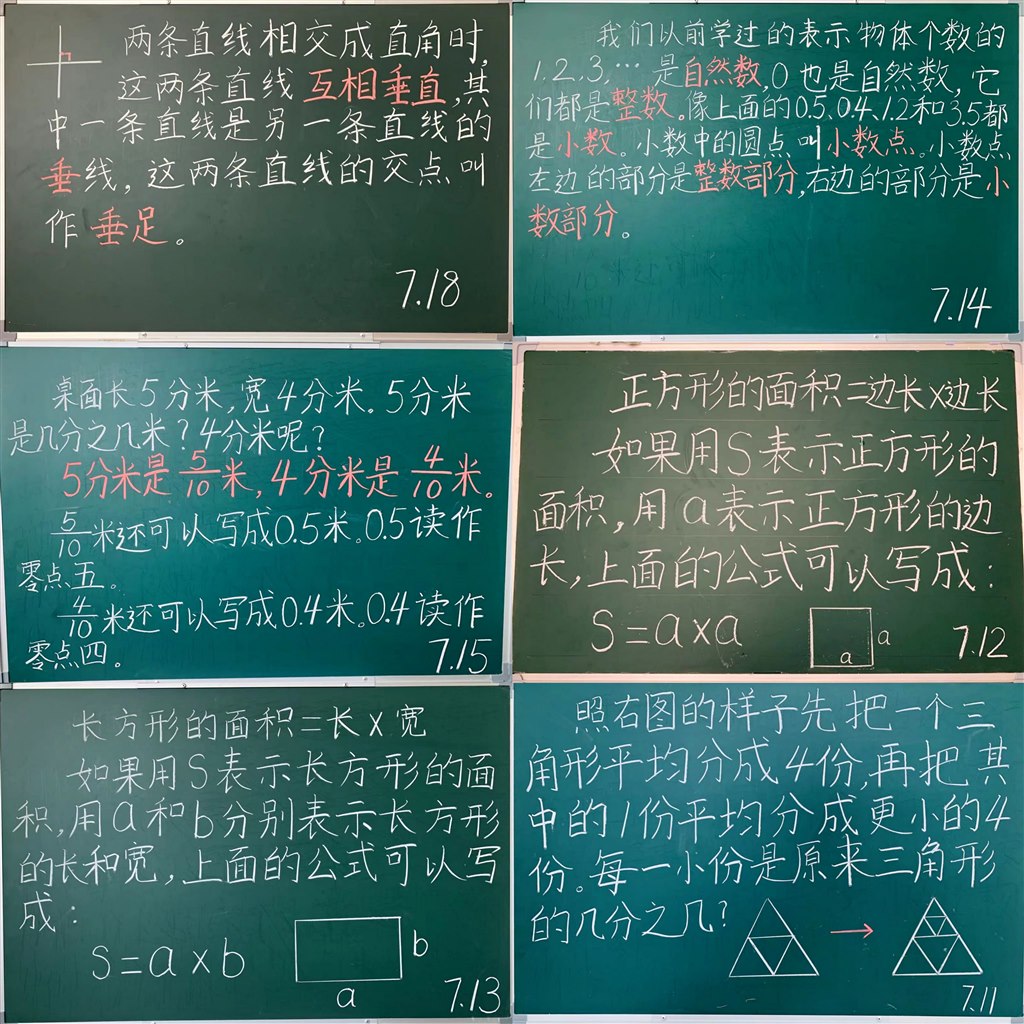 两条直线相交成直角时,
这两条直线互相垂直,其
中一条直线是另一条直线的
垂线,这两条直线的交点叫
作垂足。
7.18
我们以前学过的表示物体个数的
1,2,3,…是自然数,0也是自然数,它
们都是整数。像上面的0.5、0.4、1.2和3.5都
是小数。小数中的圆点叫小数点。小数点
左边的部分是整数部分,右边的部分是小
数部分。
7.14
桌面长5分米,宽4分米。5分米
是几分之几米?4分米呢?
5分米是5/10米,4分米是4/10米。
5/10米还可以写成0.5米。0.5读作
零点五。
4/10米还可以写成0.4米。0.4读作
零点四。
7.15
正方形的面积=边长×边长
如果用S表示正方形的
面积,用a表示正方形的边
长,上面的公式可以写成:
S=a×a
a
a
7.12
长方形的面积=长×宽
如果用S表示长方形的面
积,用a和b分别表示长方形
的长和宽,上面的公式可以写
成:
S=a×b
b
a
7.13
照右图的样子先把一个三
角形平均分成4份,再把其
中的1份平均分成更小的4
份。每一小份是原来三角形
的几分之几?
7.11